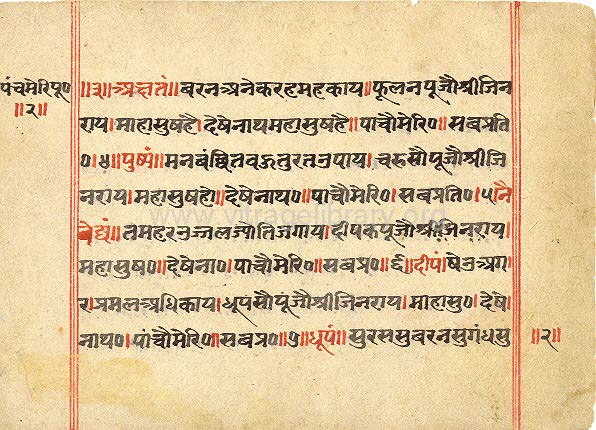 पंचमेरिपू०
॥२॥
॥३॥अक्षतं॥बरनअनेकरहमहकाय।फूलनपूजौश्रीजिन
राय।माहासुषहै।देषेनाथमहासुषहै।पाचौमेरि०।सबप्रति
०।४।पुष्पं।मनबंछितबहुतुरतनपाय।चरुसौपूजौश्रीजि
नराय।महासुषहो।देषेनाथ०।पाचौमेरि०।सबप्रति०।५।नै
वेद्यं।तमहरउज्जलज्योतिजगाय।दीपकपूजौश्रीजिनराय।
महासुष०।देषेना०।पाचौमेरि०।सबप्र०।६।दीपं।षेउअग
रप्रमलअधिकाय।धूपसौपूंजौश्रीजिनराय।माहासु०।देषे
नाथ०।पांचौमेरि०।सबप्र०।७।धूपं॥सुरससुबरनसुगंधसु
॥२॥
www.vitragelibrary.org